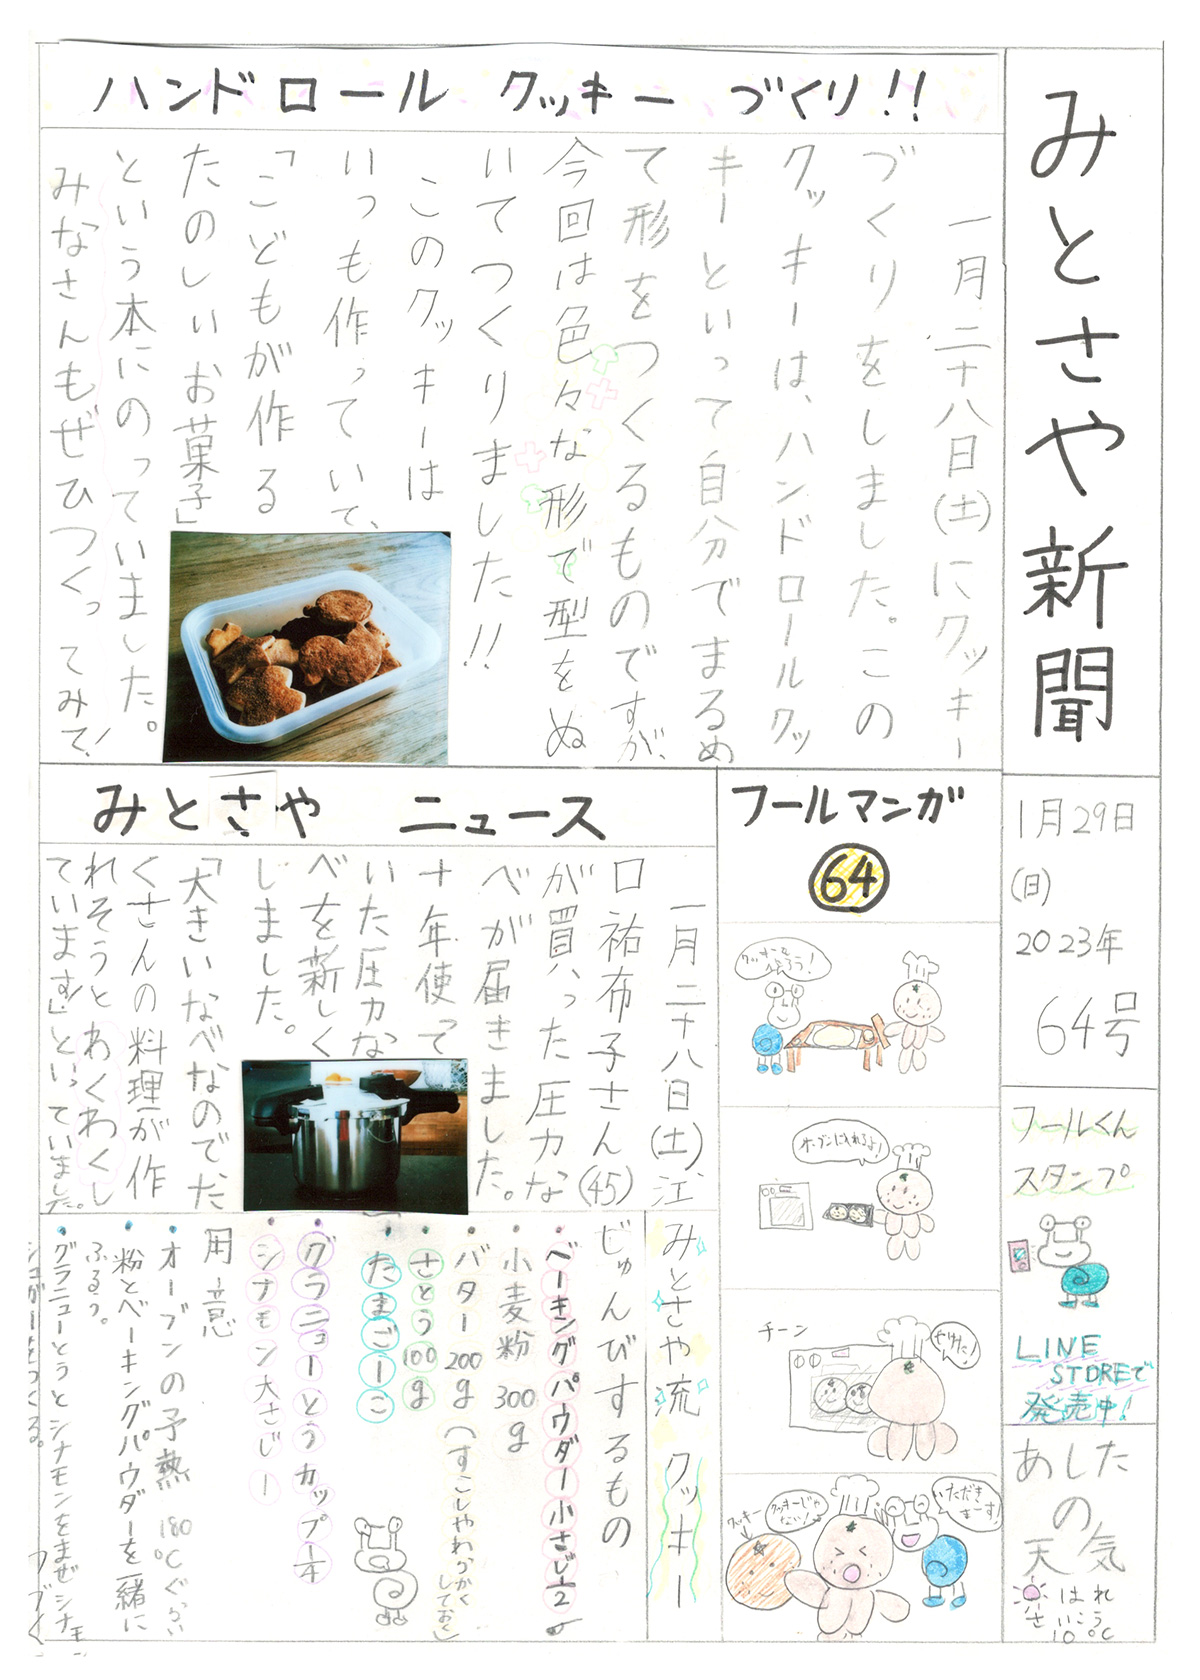 みとさや新聞
1月29日
(日)
2023年
64号
フールくん
スタンプ
LINE
STOREで
発売中!
あした
の
天気
はれ
さいこう
10℃
ハンドロール クッキー づくり!!
一月二十八日(土)にクッキー
づくりをしました。この
クッキーは、ハンドロールクッ
キーといって自分でまるめ
て形をつくるものですが、
今回は色々な形で型をぬ
いてつくりました!!
このクッキーは
いつも作っていて、
「こどもが作る
たのしいお菓子」
という本にのっていました。
みなさんもぜひつくってみて!
みとさや ニュース
一月二十八日(土)、江
口祐布子さん(45)
が買った圧力な
べが届きました。
十年使って
いた圧力な
べを新しく
しました。
「大きいなべなのでた
くさんの料理が作
れそうとわくわくし
ています」といっていました。
フールマンガ
64
クッキーを
作ろう!
オーブンにいれるよ!
チーン
やけた!
クッキー
クッキーじゃ
ない!
いただき
まーす!
みとさや流 クッキー
じゅんびするもの
・ベーキングパウダー小さじ1/2
・小麦粉 300g
・バター 200g(すこしやわらかく
しておく)
・さとう 100g
・たまご一こ
・グラニューとうカップ1/4
・シナモン大さじ一
用意
・オーブンの予熱 180℃ぐらい
・粉とベーキングパウダーを一緒に
ふるう。
・グラニューとうとシナモンをまぜシナモン
シュガーをつくる。
つづく